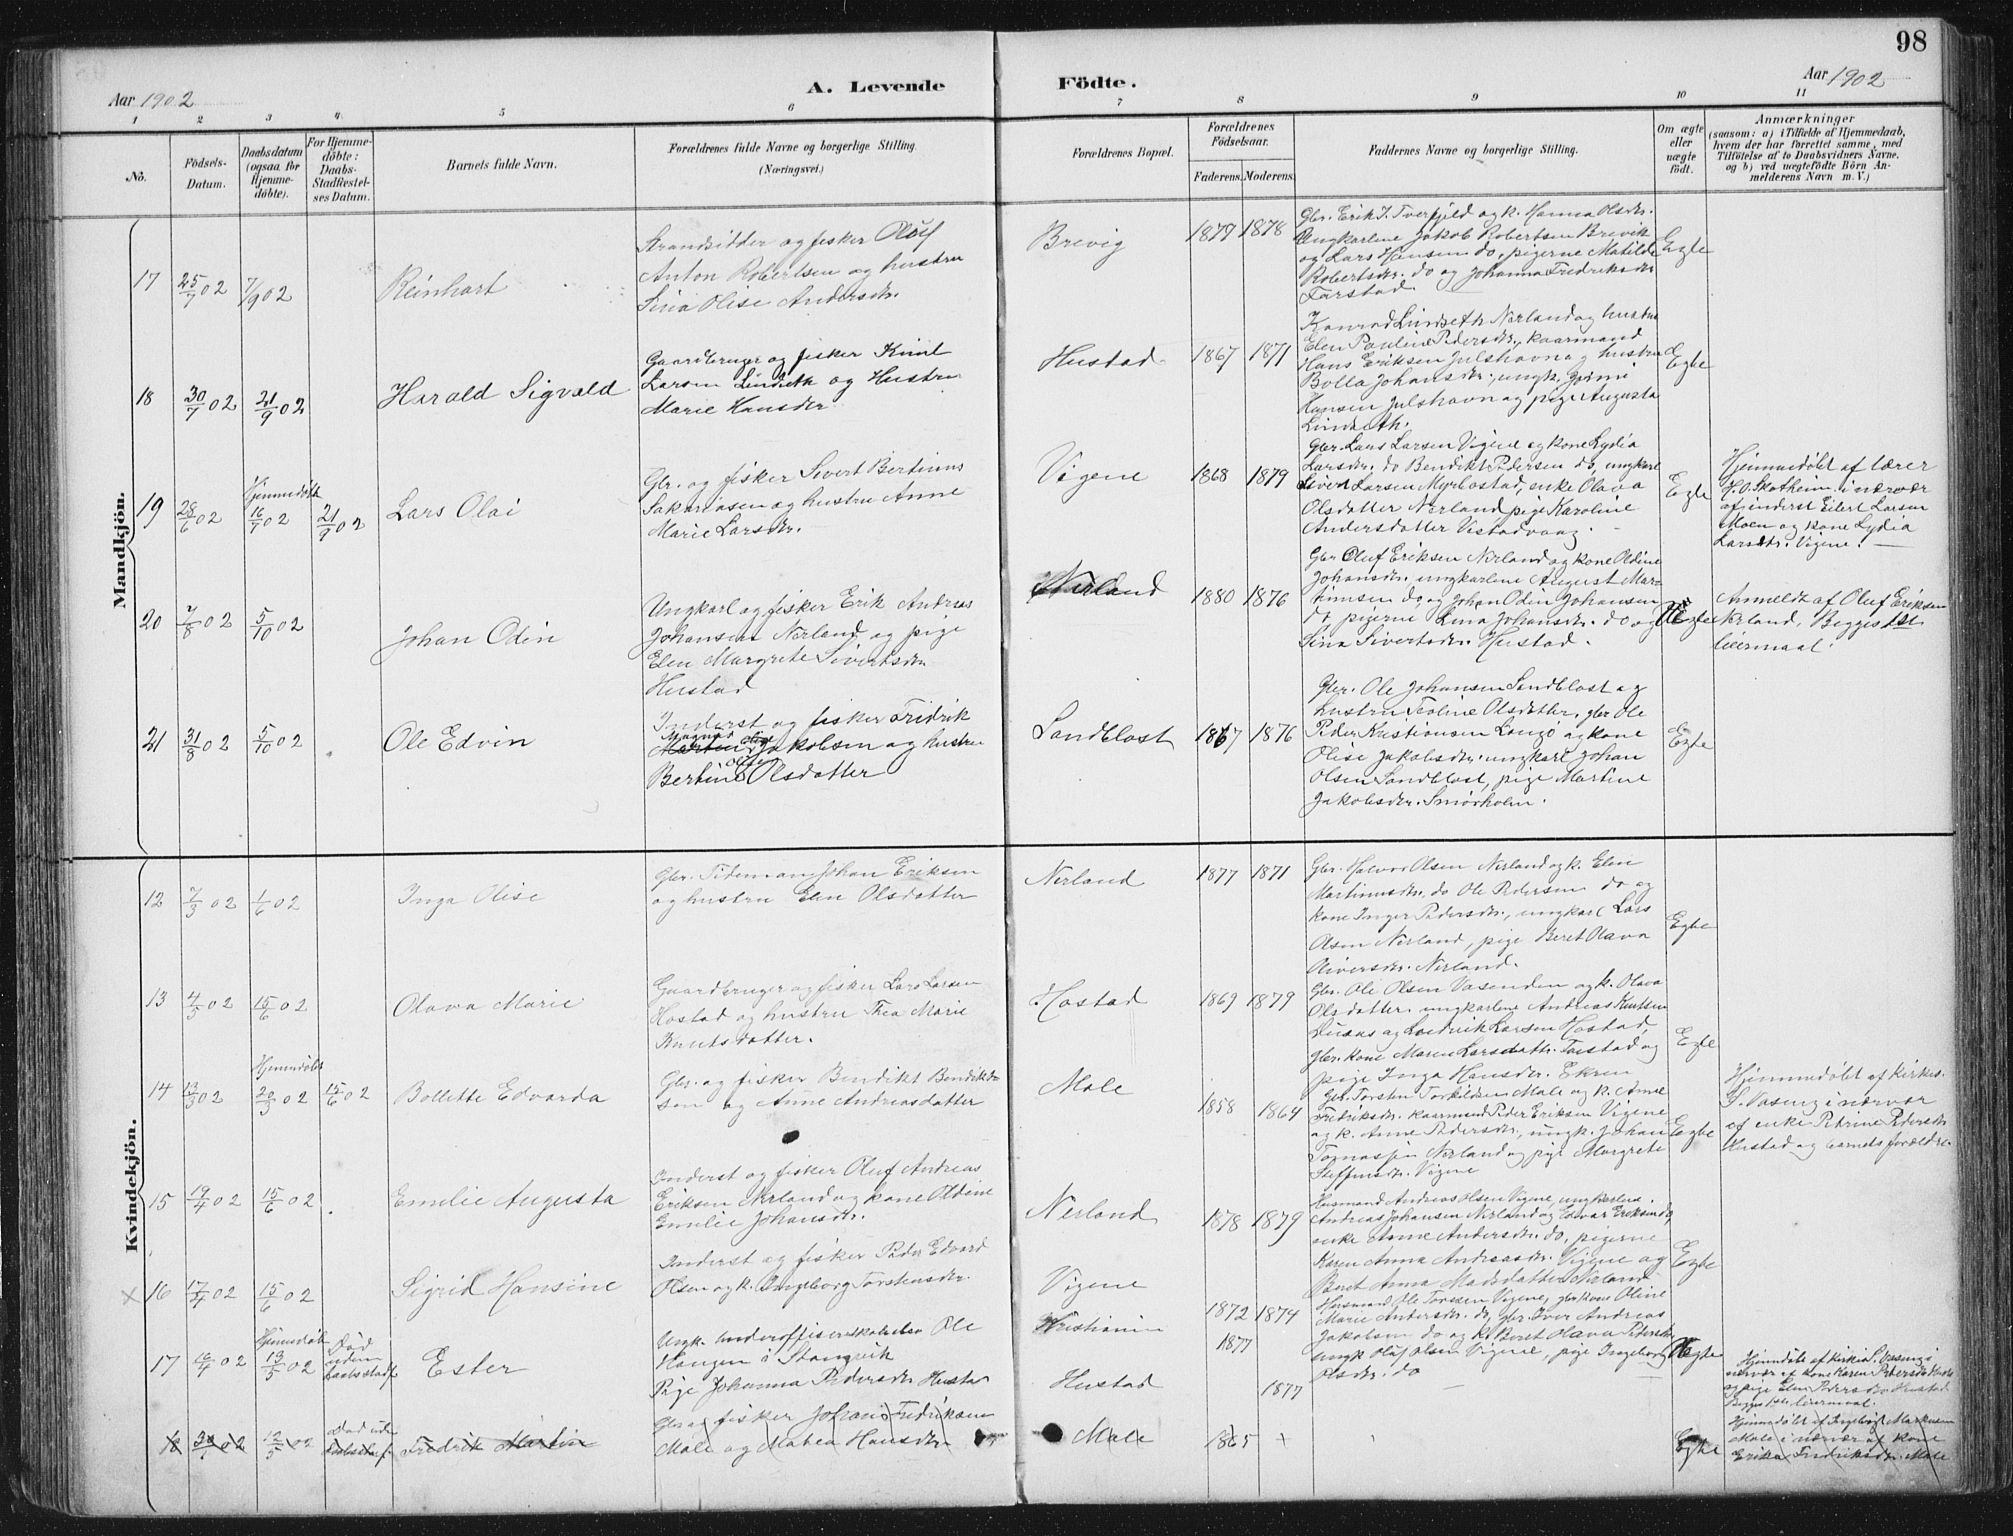 98
Aar 1902
A. Levende
Födte.
Aar 1902
1 2 3 4 5 6 7 8 9 10 11
No.
Födsels-
Datum.
Daabsdatum
(ogsaa for
Hjemme-
døbte).
For Hjemme-
døbte:
Daabs-
Stadfæstel-
ses Datum.
Barnets fulde Navn.
Forældrenes fulde Navne og borgerlige Stilling.
(Næringsvei.)
Forældrenes Bopæl.
Forældrenes
Födselsaar.
Faderens. Moderens.
Faddernes Navne og borgerlige Stilling.
Om ægte
eller
uægte
födt.
Anmærkninger
(saasom: a) i Tilfælde af Hjemmedaab,
hvem der har forrettet samme, med
Tilføielse af to Daabsvidners Navne.
og b) ved uægtefødte Börn An-
melderens Navn m. V.)
Mandkjön.
17 25/7 02 7/9 02
Reinhart
Strandsidder og fisker Oluf
Anton Robertsen og hustru
Sina Olise Andersdtr.
Brevig
1879 1878
Gbr. Erik I. Tverfjeld og k. Hanna Olsdtr.
Ungkarlene Jakob Robertsen Brevik
og Lars Hansen do, pigerne Matilde
Robertsdtr. do og Johanna Fredriksdtr
Farstad.
Egte
18 30/7 02 21/9 02
Harald Sigvald
Gaardbruger og fisker Knut
Larsen Lindseth og Hustru
Marie Hansdtr
Hustad
1867 1871
Konrad Lindseth Nerland og hustru
Elen Pauline Pedersdtr, kaarmand
Hans Eriksen Julshavn og hustru
Bolla Johansdtr., ungk.
Hansen Julshavn og pige Augusta
Lindseth.
Egte
19 28/6 02
Hjemmedøbt
16/7 02 21/9 02
Lars Olai
Gbr. og fisker Sivert Bertinus
Sakariasen og hustru Anne
Marie Larsdtr.
Vigene
1868 1879
Gbr. Lars Larsen Vigene og kone Lydia
Larsdtr. do Bendikt Pedersen do, ungkarl
Sivert Larsen Myrbostad, enke Olava
Olsdatter Nerland, pige Karoline
Andersdatter Vestadvaag.
Egte
Hjemmedøbt af lærer
H. O. Skotheim i nærvær
af inderst Eilert Larsen
Moen og kone Lydia
Larsdtr. Vigene.
20 7/8 02 5/10 02
Johan Odin
Ungkarl og fisker Erik Andreas
Johansen Nerland og pige
Elen Margrete Sivertsdtr
Hustad
Nerland
1880 1876
Gbr Oluf Eriksen Nerland og kone Oldine
Johansdtr. ungkarlene August Mar-
tinusen do, og Johan Odin Johansen
do pigerne Lina Johansdtr. do og
Sina Sivertsdtr. Hustad.
Uegte
Anmeldt af Oluf Eriksen
Nerland. Begges 1ste
leiermaal.
21 31/8 02 5/10 02
Ole Edvin
Inderst og fisker Fridrik
Magnus
Martin Jakobsen og hustru
Bertine Olsdatter
Sandblost
1867 1876
Gbr. Ole Johansen Sandblost og
hustru Ioline Olsdatter, gbr Ole
Peder Kristiansen Langö og kone
Olise Jakobsdtr. ungkarl Johan
Olsen Sandblost, pige Martine
Jakobsdtr. Smörholm.
Egte
Kvindekjön.
12 7/3 02 1/6 02
Inga Olise
Gbr. Tideman Johan Eriksen
og hustru Elen Olsdatter
Nerland
1877 1871
Gbr. Halvor Olsen Nerland og k. Elen
Martinusdtr. do Ole Pedersen do og
kone Inger Pedersdtr., ungkarl Lars
Olsen Nerland, pige Beret Olava
Oliversdtr. Nerland.
Egte
13 4/5 02 15/6 02
Olava Marie
Gaardbruger og fisker Lars Larsen
Hostad og hustru Thea Marie
Knutsdatter.
Hostad
1869 1879
Gbr. Ole Olsen Vasenden og k. Olava
Olsdatter ungkarlene Andreas Knutsen
og Ludvik Larsen Hostad,
gbr. kone Maren Larsdatter Farstad og
pige Inga Hansdtr. Ekren
Egte
14 13/3 02
Hjemmdöbt
20/3 02 15/6 02
Bollette Edvarda
Gbr. og fisker Bendikt Bendikt-
sen og Anne Andreasdatter
Male
1858 1864
Gbr. Torsten Torkildsen Male og k. Anne
Fredriksdtr. kaarmand Peder Eriksen Vigene
og k. Anne Pedersdtr., ungk. Johan
Nerland og pige Margrete
Steffensdtr. Vigene
Egte
Hjemmedøbt af Kirkes.
S. Vaseng i nærvær
af enke Petrine Pedersdtr
Hustad og barnets forældre.
15 19/4 02 15/6 02
Emilie Augusta
Inderst og fisker Oluf Andreas
Eriksen Nerland og kone Oldine
Emilie Johansdtr.
Nerland
1878 1879
Husmand Andreas Olsen Vigene, ungkarlene
Andreas Johansen Nerland og Edvar Eriksen do,
enke Anne Andersdtr. do, pigerne
Karen Anna Andreasdtr. Vigene og
Beret Anna Madsdatter Nerland.
Egte
x 16 17/4 02 15/6 02
Sigrid Hansine
Inderst og fisker Peder Edvard
Olsen og k. Ingeborg Torstensdtr.
Vigene
1872 1874
Husmand Ole Torsten Vigene, gbr kone Oline
Marie Andersdtr. do, gbr. Iver Andreas
Jakobsen do og k. Beret Olava Pedersdtr
ungk Oluf Olsen Vigene, pige Ingeborg
Olsdtr. do
17 16/4 02
Hjemmedöbt
13/5 02
Död
uden
daabsstadf
Ester
Ungk. Underoffiserskoleelev Ole
Haugen i Stangvik
Pige Johanna Pedersdtr Hustad
Kristiania
Hustad
1877
1877
Uegte
Hjemdöbt af Kirkes. S. Vaseng i
nærvær af kone Karen Pedersdtr Hustad
og pige Elen Pedersdtr Hustad
Begges 1ste leiermaal.
18 30/4 02 12/5 02
Död uden
Fredrik Martin
Gbr og fisker Johan Fredriksen
Male og Matea Hansdtr
Male
1865 +
Egte
Hjemmdöbt af Ingeborg Markusen
Male i nærvær af kone
Erika Fredriksdtr. Male